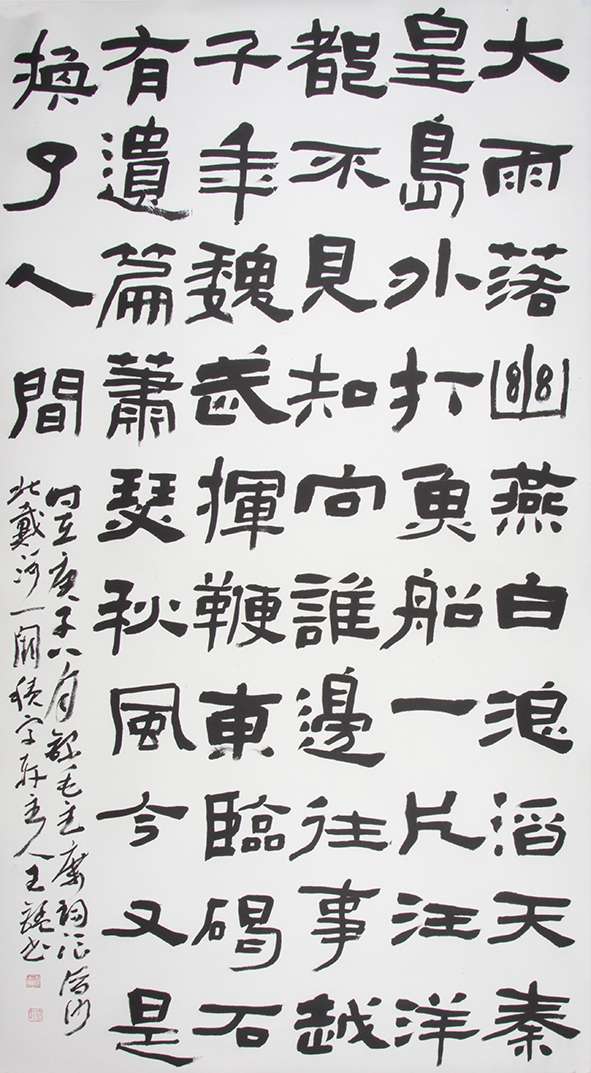 大雨落幽燕白浪滔天秦
皇島外打魚船一片汪洋
都不見知向誰邊往事越
千年魏武揮鞭東臨碣石
有遺篇蕭瑟秋風今又是
換了人間
時在庚子八月錄毛主席詞浪淘沙
北戴河一闋主人王书